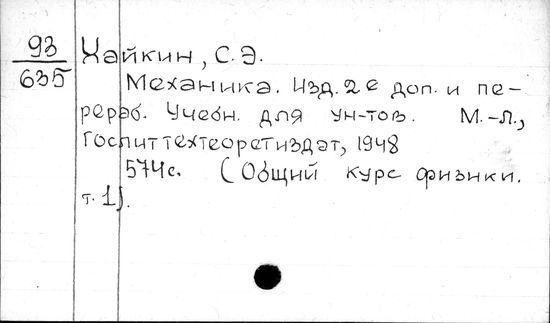 93 Хайкин, С.Э.
635
Механика. Изд. 2е доп. и пе-
рераб. Учебн. для ун-тов. М.-Л.,
Госпиттехтеоретиздат, 1948
574с. (Общий курс физики.
т. 1).